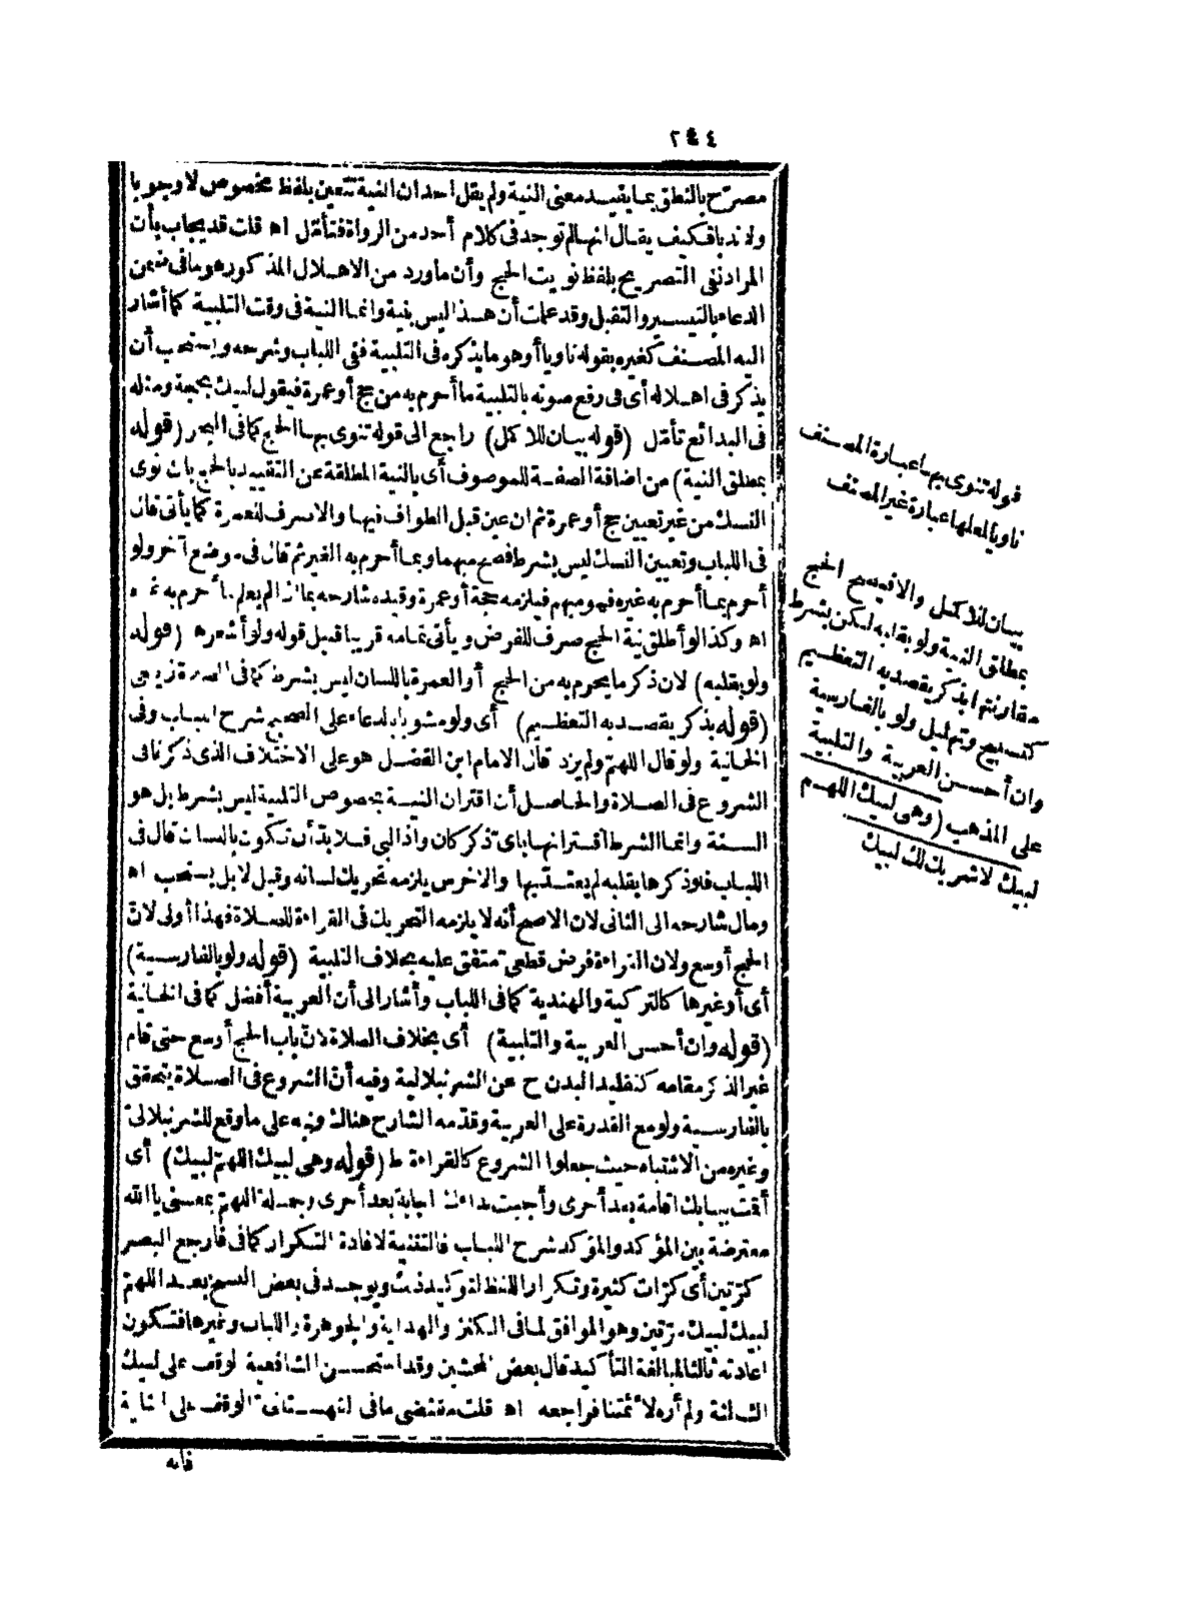 ٢٤٤
مصرّح بالنطق بما يفيد معنى النية ولم يقل أحد ان النية تتعين بلفظ مخصوص لا وجوبا
ولا ندبا فكيف يقال انها لم توجد فى كلام أحد من الرواة فتأمّل اه قلت قد يجاب بأن
المراد نفى التصريح بلفظ نويت الحج وأن ما ورد من الاهلال المذكور هو ما فى ضمن
الدعاء بالتيسير والتقبل وقد علمت أن هذا ليس بنية وانما النية فى وقت التلبية كما أشار
اليه المصنف كغيره بقوله ناويا أو هو ما يذكره فى التلبية ففى اللباب وشرحه ويستحب أن
يذكر فى اهلاله أى فى رفع صوته بالتلبية ما أحرم به من حج أو عمرة فيقول لبيك بحجة ومثله
فى البدائع تأمّل (قوله بيان للاكمل) راجع الى قوله تنوى بها الحج كما فى البحر (قوله
بمطلق النية) من اضافة الصفة للموصوف أى بالنية المطلقة عن التقييد بالحج بان نوى
النسك من غير تعيين حج أو عمرة ثم ان عين قبل الطواف فبها والا صرف للعمرة كما يأتى قال
فى اللباب وتعيين النسك ليس بشرط فصح مبهما وبما أحرم به الغير ثم قال فى موضع آخر ولو
أحرم بما أحرم به غيره فهو مبهم فيلزمه حجة أو عمرة وقيده شارحه بما اذا لم يعلم ما أحرم به غيره
اه وكذا لو أطلق نية الحج صرف للفرض ويأتى تمامه قريبا قبيل قوله ولو أشعرها (قوله
ولو بقلبه) لان ذكر ما يحرم به من الحج أو العمرة باللسان ليس بشرط كما فى الصلاة زيلعى
(قوله بذكر يقصد به التعظيم) أى ولو مشوبا بالدعاء على الصحيح شرح اللباب وفى
الخانية ولو قال اللهمّ ولم يزد قال الامام ابن الفضل هو على الاختلاف الذى ذكرنا فى
الشروع فى الصلاة والحاصل أن اقتران النية بخصوص التلبية ليس بشرط بل هو
السنة وانما الشرط اقترانها باى ذكر كان واذا لبى فلا بدّ أن تكون باللسان قال فى
اللباب فلو ذكرها بقلبه لم يعتدّ بها والاخرس يلزمه تحريك لسانه وقيل لا بل يستحب اه
ومال شارحه الى الثانى لان الاصح أنه لا يلزمه التحريك فى القراءة للصلاة فهذا أولى لانّ
الحج أوسع ولان القراءة فرض قطعى متفق عليه بخلاف التلبية (قوله ولو بالفارسية)
أى أو غيرها كالتركية والهندية كما فى اللباب وأشار الى أن العربية أفضل كما فى الخانية
(قوله وان أحسن العربية والتلبية) أى بخلاف الصلاة لانّ باب الحج أوسع حتى قام
غير الذكر مقامه كتقليد البدن ح عن الشرنبلالية وفيه أنّ الشروع فى الصلاة يتحقق
بالفارسية ولو مع القدرة على العربية وقدّمه الشارح هناك ونبه على ما وقع للشرنبلالى
وغيره من الاشتباه حيث جعلوا الشروع كالقراءة ط (قوله وهى لبيك اللهمّ لبيك) أى
أقمت ببابك اقامة بعد أخرى وأجبت نداءك اجابة بعد أخرى وجملة اللهمّ بمعنى يا الله
معترضة بين المؤكد والمؤكد شرح اللباب فالتثنية لافادة التكرار كما فى فارجع البصر
كرّتين أى كرّات كثيرة وتكرار اللفظ لتوكيد ذلك ويوجد فى بعض النسخ بعد اللهمّ
لبيك لبيك مرّتين وهو الموافق لما فى الكنز والهداية والجوهرة واللباب وغيرها فتكون
اعادته ثالثا لمبالغة التأكيد قال بعض المحشين وقد استحسن الشافعية الوقف على لبيك
الثالثة ولم أره لائمّتنا فراجعه اه قلت مقتضى ما فى القهستانى الوقف على الثانية
فانه
قوله تنوى بها عبارة المصنف
ناويا لعلها عبارة غير المصنف
بيان للاكمل والا فيصح الحج
بمطلق النية ولو بقلبه لكن بشرط
مقارنتها بذكر يقصد به التعظيم
كتسبيح وتهليل ولو بالفارسية
وان أحسن العربية والتلبية
على المذهب (وهى لبيك اللهم
لبيك لا شريك لك لبيك